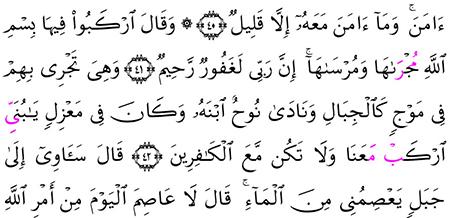 ءَامَنَۚ وَمَآ ءَامَنَ مَعَهُۥٓ إِلَّا قَلِيلٞ ﴿٤٠﴾ ۞ وَقَالَ ٱرۡكَبُواْ فِيهَا بِسۡمِ
ٱللَّهِ مُجۡرَىٰهَا وَمُرۡسَىٰهَآۚ إِنَّ رَبِّي لَغَفُورٞ رَّحِيمٞ ﴿٤١﴾ وَهِيَ تَجۡرِي بِهِمۡ
فِي مَوۡجٖ كَٱلۡجِبَالِ وَنَادَىٰ نُوحٌ ٱبۡنَهُۥ وَكَانَ فِي مَعۡزِلٖ يَٰبُنَيِّ
ٱرۡكَبۡ مَعَنَا وَلَا تَكُن مَّعَ ٱلۡكَٰفِرِينَ ﴿٤٢﴾ قَالَ سَـَٔاوِيٓ إِلَىٰ
جَبَلٖ يَعۡصِمُنِي مِنَ ٱلۡمَآءِۚ قَالَ لَا عَاصِمَ ٱلۡيَوۡمَ مِنۡ أَمۡرِ ٱللَّهِ